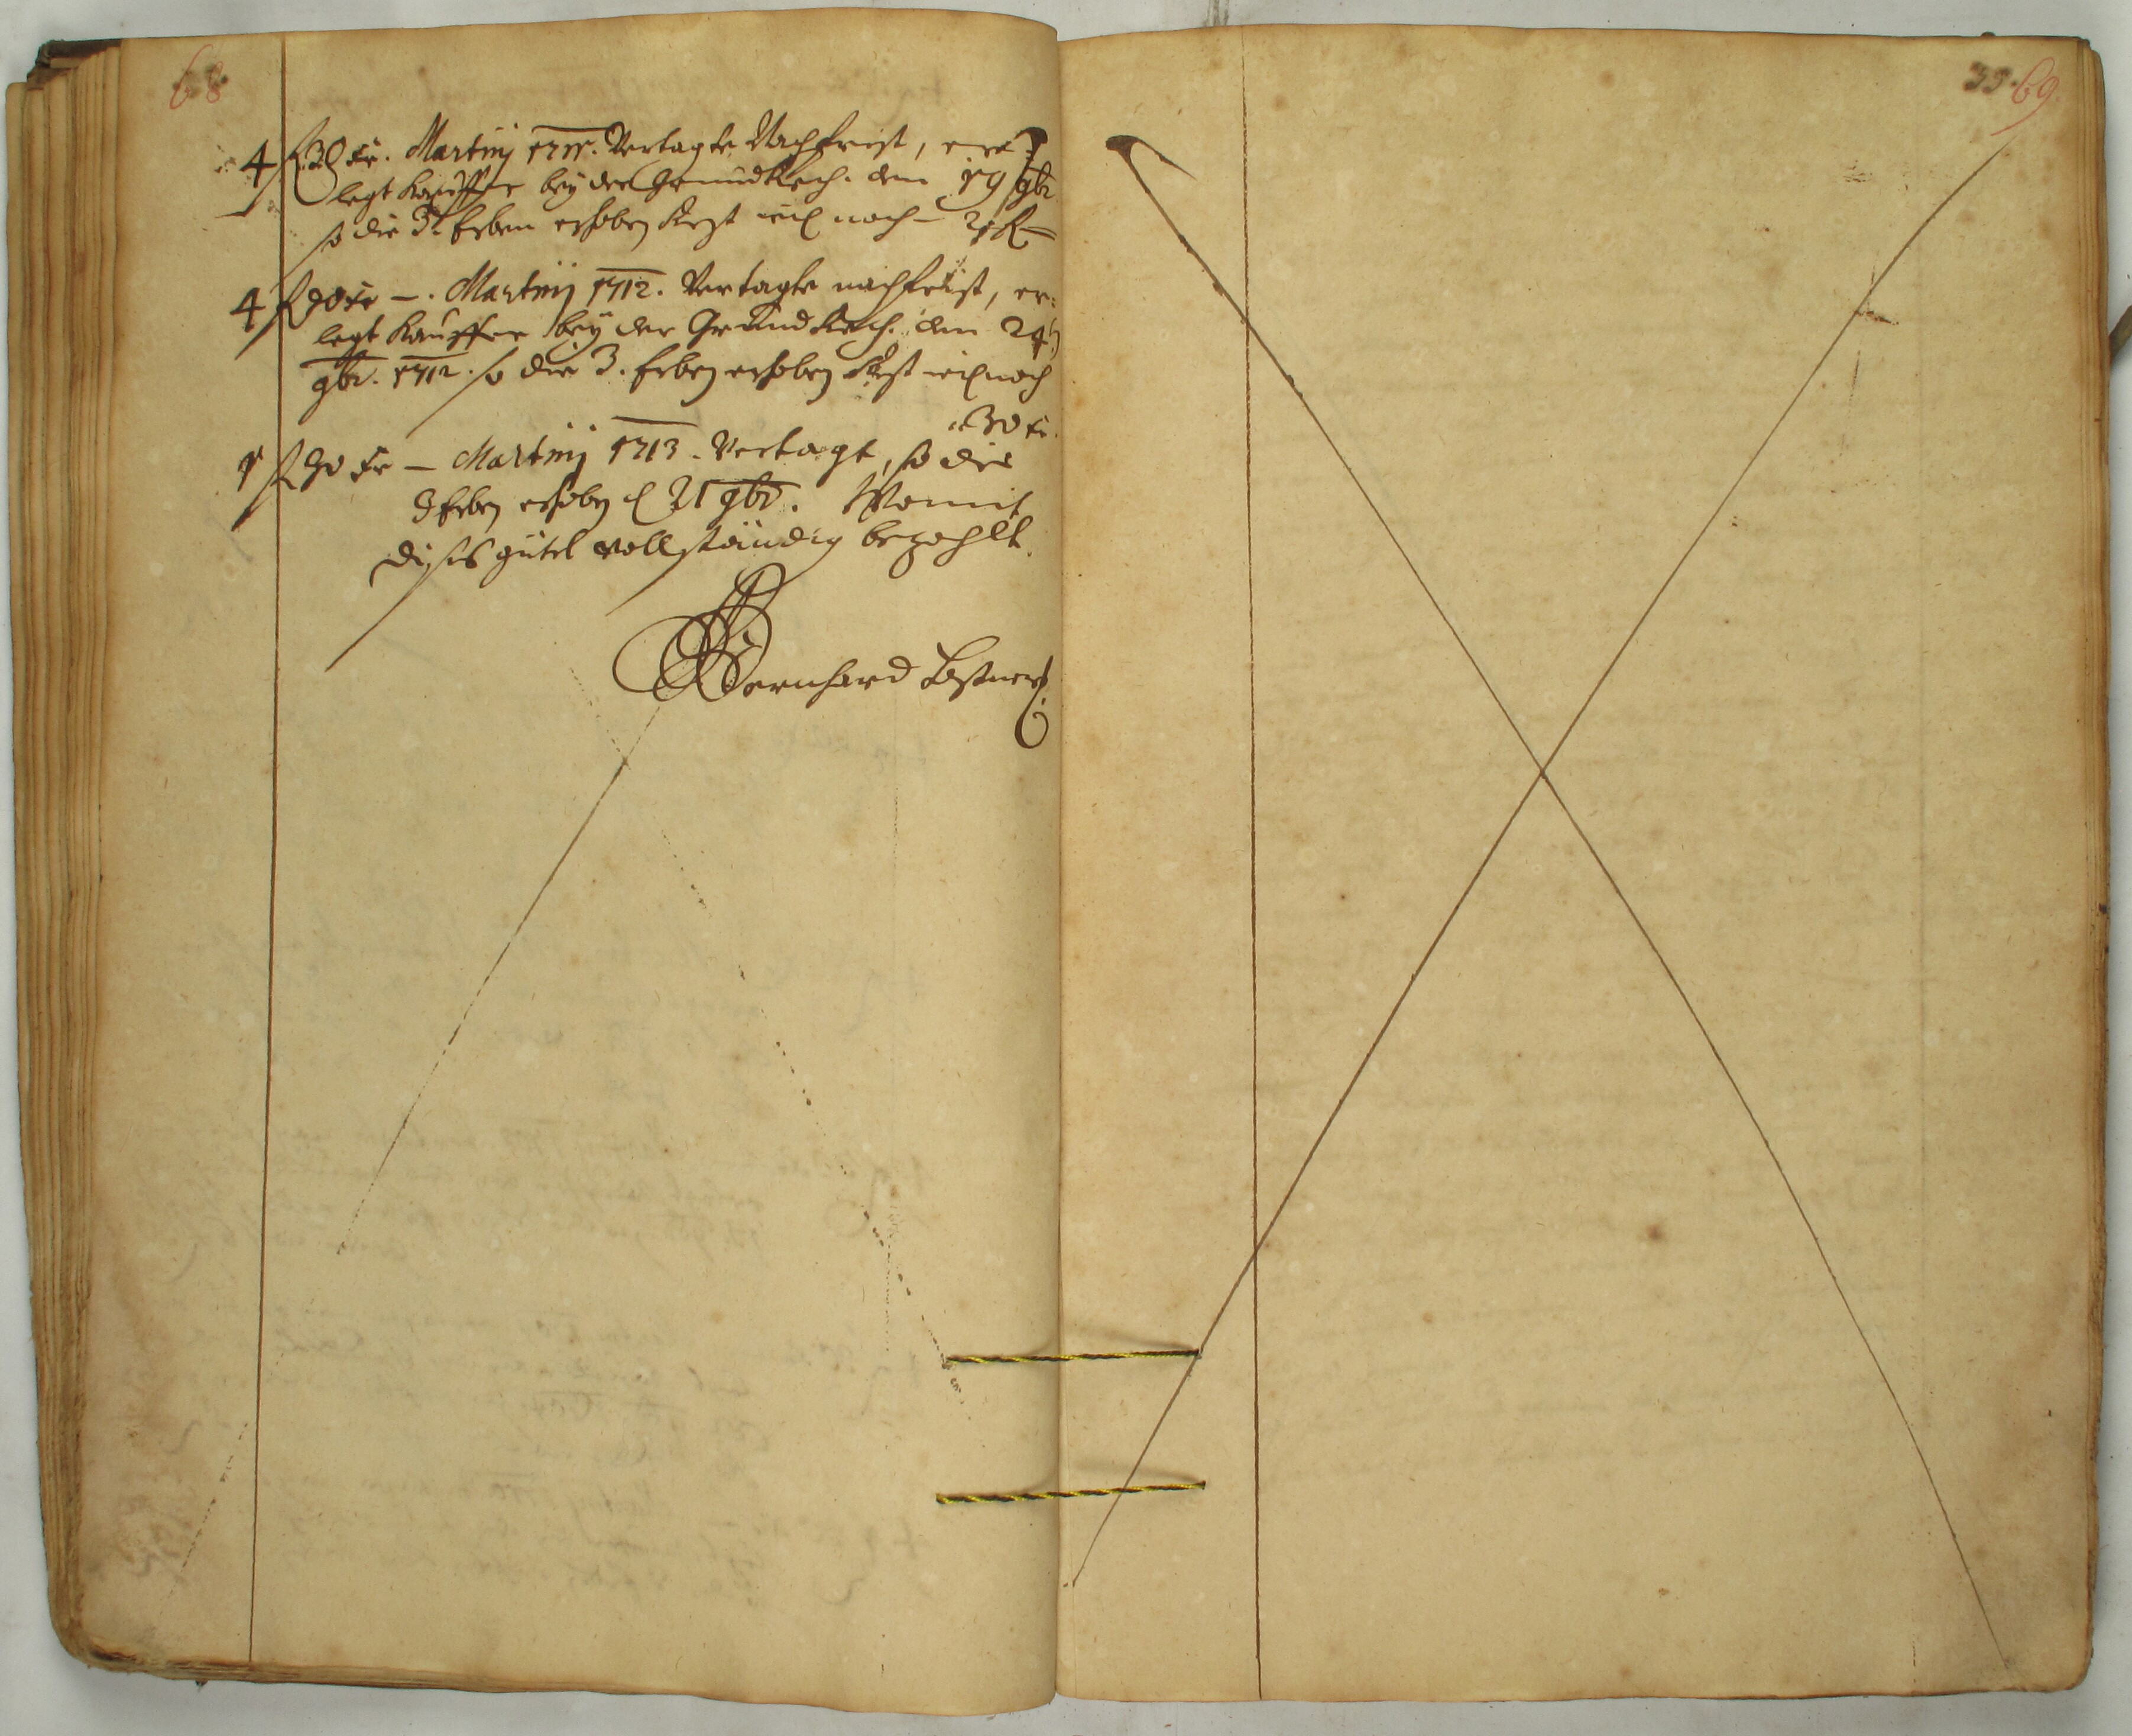 68
4 f 30 kr. Martinj 1711. Vertagte Nachfrist, er=
legt Kauffer bey der Grundbuch. den 19 9br
so die 3. Erben erhoben Rest noch — 21 f
4 f 30 kr —. Martinj 1712. Vertagte nachfrist, er=
legt Kauffer bey der Grund buch. den 24
9br. 1712. so die 3. Erben erhoben Rest noch
30 kr.
1 f 30 kr — Martinj 1713. Vertagt, so die
3 Erben erhoben d 21 9br. Womit
dises gütel vollständig bezahlt.
Bernhard
39. 69